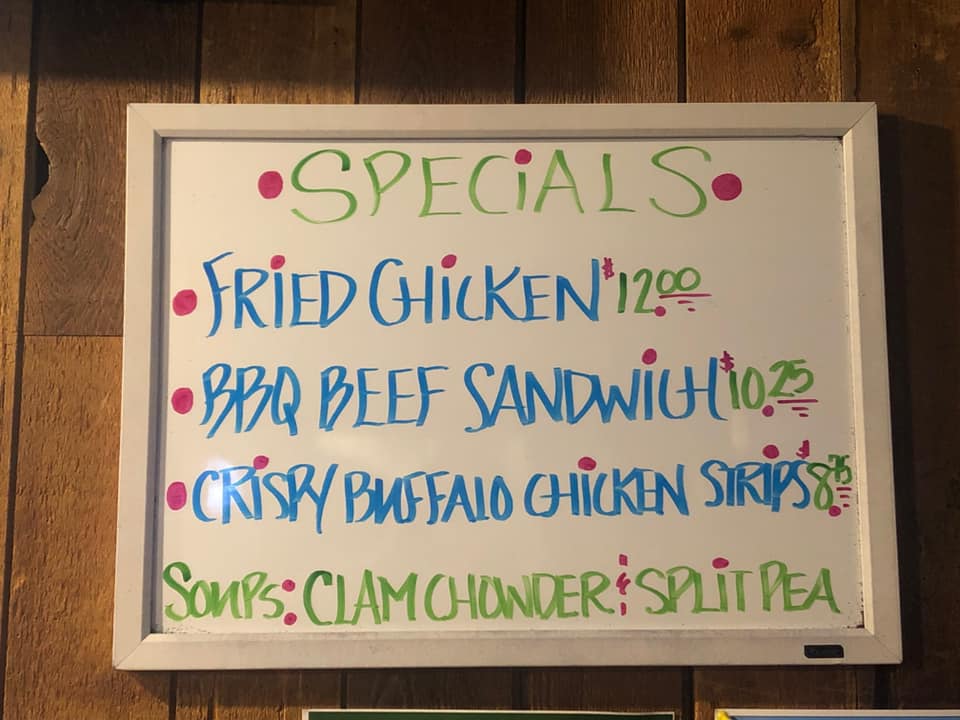 • SPECiALS •
• FRiED CHiCKEN $12.00
• BBQ BEEF SANDWiCH $10.25
• CRiSPY BUFFALO CHiCKEN STRiPS $8.75
SOUPS: CLAM CHOWDER & SPLiT PEA